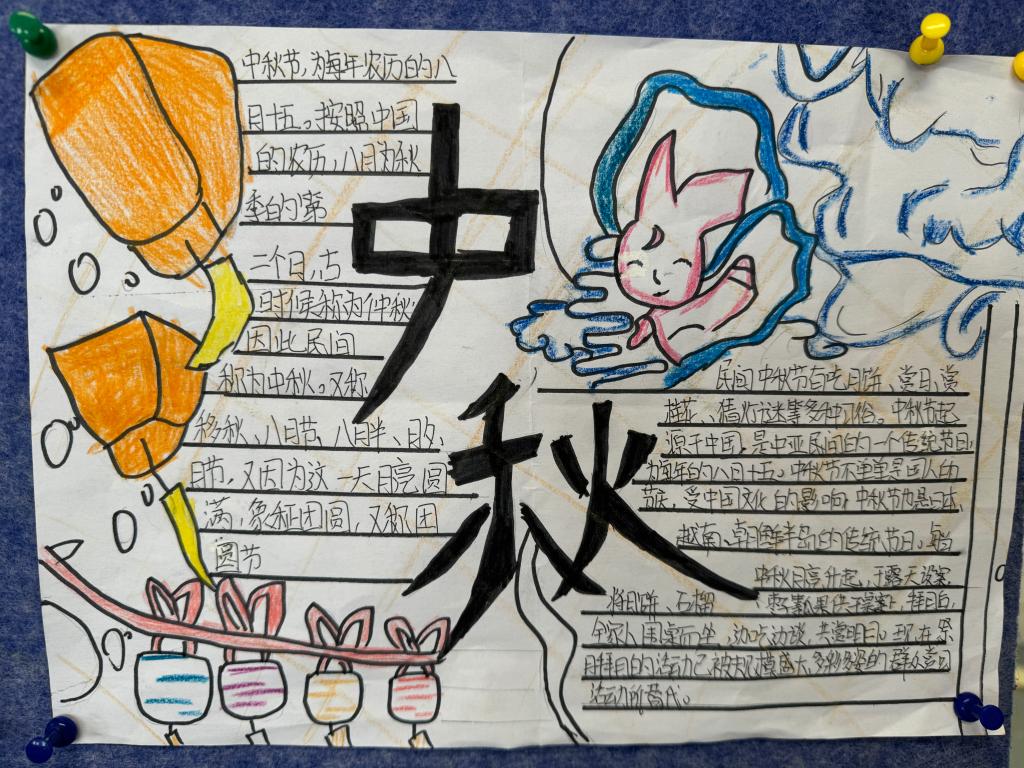 中秋节,为每年农历的八
月十五。按照中国
的农历,八月为秋
季的第
二个月,古
时候称为仲秋
因此民间
称为中秋。又称
移秋、八月节、八月半、月夕、
月节,又因为这一天月亮圆
满,象征团圆,又称团
圆节
中秋
民间中秋节有吃月饼、赏月、赏
桂花、猜灯谜等多种习俗。中秋节起
源于中国,是中亚民间的一个传统节日,
为每年的八月十五。中秋节不重是国人的
节,受中国文化的影响,中秋节也是日本、
越南、朝鲜半岛的传统节日。每当
中秋月亮升起,于露天设案
将月饼、石榴 枣等果供于桌案上,拜月后
全家人围桌而坐,边吃边谈,共赏明月。现在祭
月拜月的活动已被规模盛大、多彩多姿的群众赏月
活动所替代。